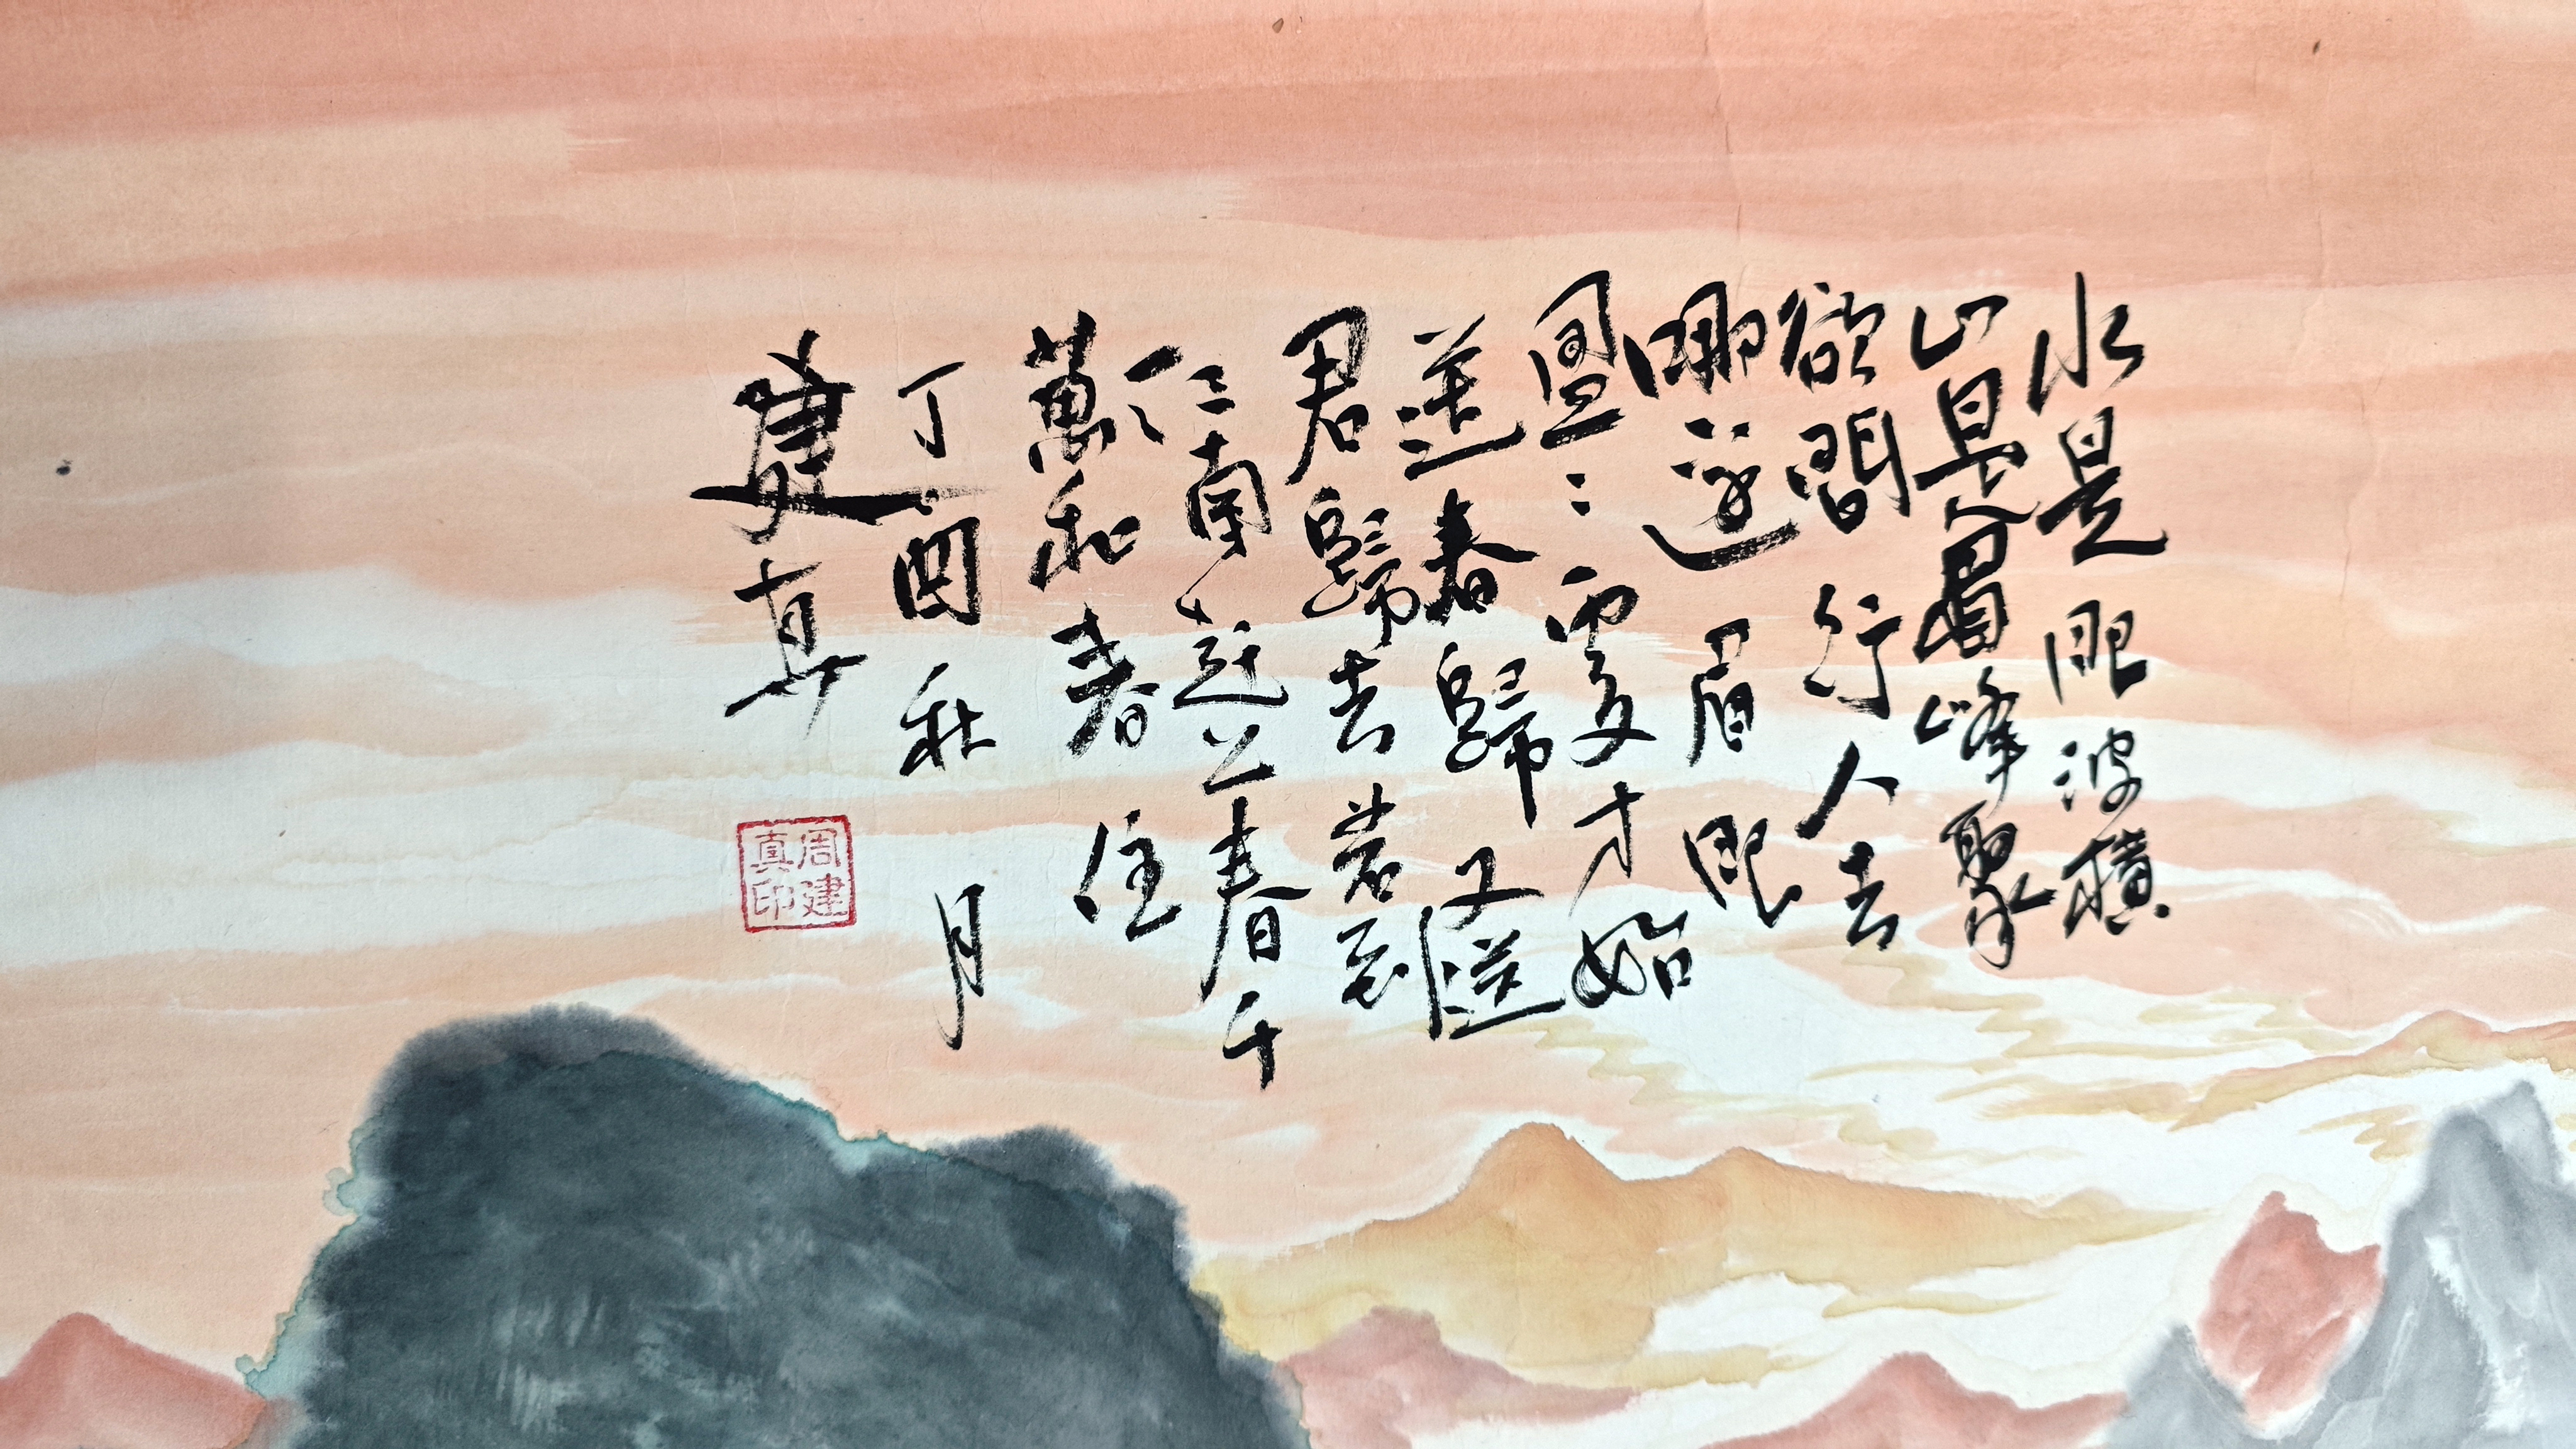 水是眼波橫
山是眉峰聚
欲問行人去
哪邊眉眼
盈〻處才始
送春歸又送
君歸去若到
江南趕上春千
萬和春住
丁酉秋月
建真
周建
真印